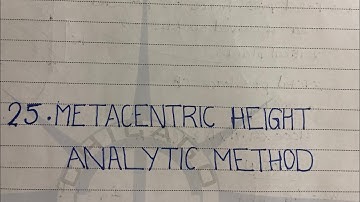 25. METACENTRIC HEIGHT
ANALYTIC METHOD